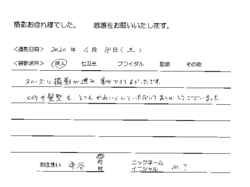 撮影お疲れ様でした。 感想をお願いいたします。
<撮影日時> 2020 年 6 月 日 (土)
<撮影項目> 成人 七五三 ブライダル 記念 その他
スムーズに撮影が進み
髪型も とても かわいくしていただいて ありがとうございました。
お住まい 市 町 村 ニックネーム イニシャル M.Y